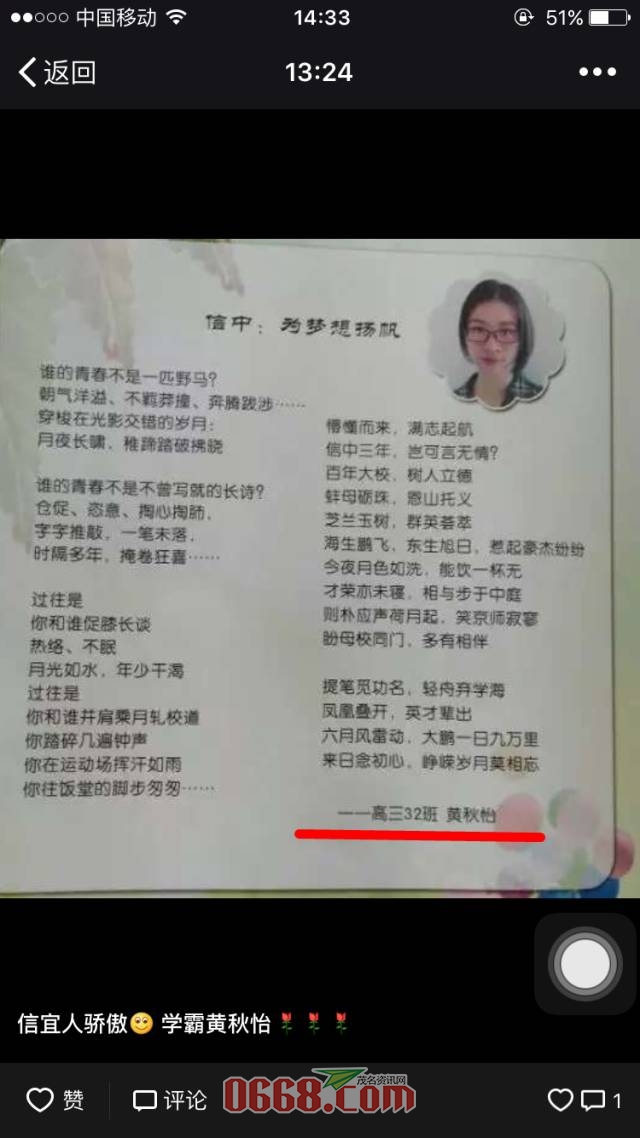 中国移动
14:33
51%
返回
13:24
信中：为梦想扬帆
谁的青春不是一匹野马？
朝气洋溢、不羁莽撞、奔腾跋涉……
穿梭在光影交错的岁月：
月夜长啸，稚蹄踏破拂晓
谁的青春不是不曾写就的长诗？
仓促、恣意、掏心掏肺，
字字推敲，一笔未落，
时隔多年，掩卷狂喜……
过往是
你和谁促膝长谈
热络、不眠
月光如水，年少干渴
过往是
你和谁并肩乘月轧校道
你踏碎几遍钟声
你在运动场挥汗如雨
你往饭堂的脚步匆匆……
懵懂而来，满志起航
信中三年，岂可言无情？
百年大校，树人立德
蚌母砺珠，恩山托义
芝兰玉树，群英荟萃
海生鹏飞，东生旭日，惹起豪杰纷纷
今夜月色如洗，能饮一杯无
才荣亦未寝，相与步于中庭
则朴应声荷月起，笑京师寂寥
盼母校同门，多有相伴
提笔觅功名，轻舟弃学海
凤凰叠开，英才辈出
六月风雷动，大鹏一日九万里
来日念初心，峥嵘岁月莫相忘
——高三32班 黄秋怡
信宜人骄傲 学霸黄秋怡
赞
评论
茂名资讯网
0668.com
1